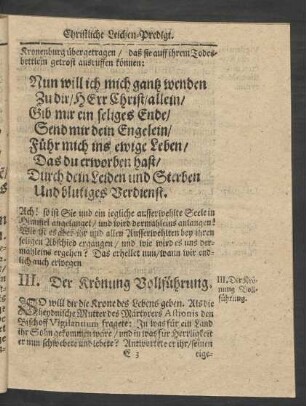 Christliche Leichen-Predigt.
Kronenburg übergetragen / daß sie auff ihrem Todes-
bettlein getrost ausruffen können:
Nun will ich mich gantz wenden
Zu dir / HErr Christ / allein /
Gib mir ein seliges Ende /
Send mir dein Engelein /
Führ mich ins ewige Leben /
Das du erworben hast /
Durch dein Leiden und Sterben
Und blutiges Verdienst.
Ach! so ist Sie und ein iegliche ausserwehlte Seele in
Himmel angelanget / und wird dermahleinst anlangen!
Wie ist es aber ihr und allen Ausserwehlten bey ihrem
seligen Abschied ergangen / und wie wird es uns der-
mahleins ergehen? Das erhellet nun / wann wir end-
lich auch erwegen
III. Der Krönung Vollführung.
III. Der Krö-
nung Voll-
führung.
SO will dir die Krone des Lebens geben. Als die
Heydnische Mutter des Märtyrers Astionis den
Bischoff Vigilantium fragete: In was für ein Land
ihr Sohn gekommen wäre / und in was für Herrligkeit
er nun schwebete und lebete? Antwortete er ihr / seinen
E 3
eige-